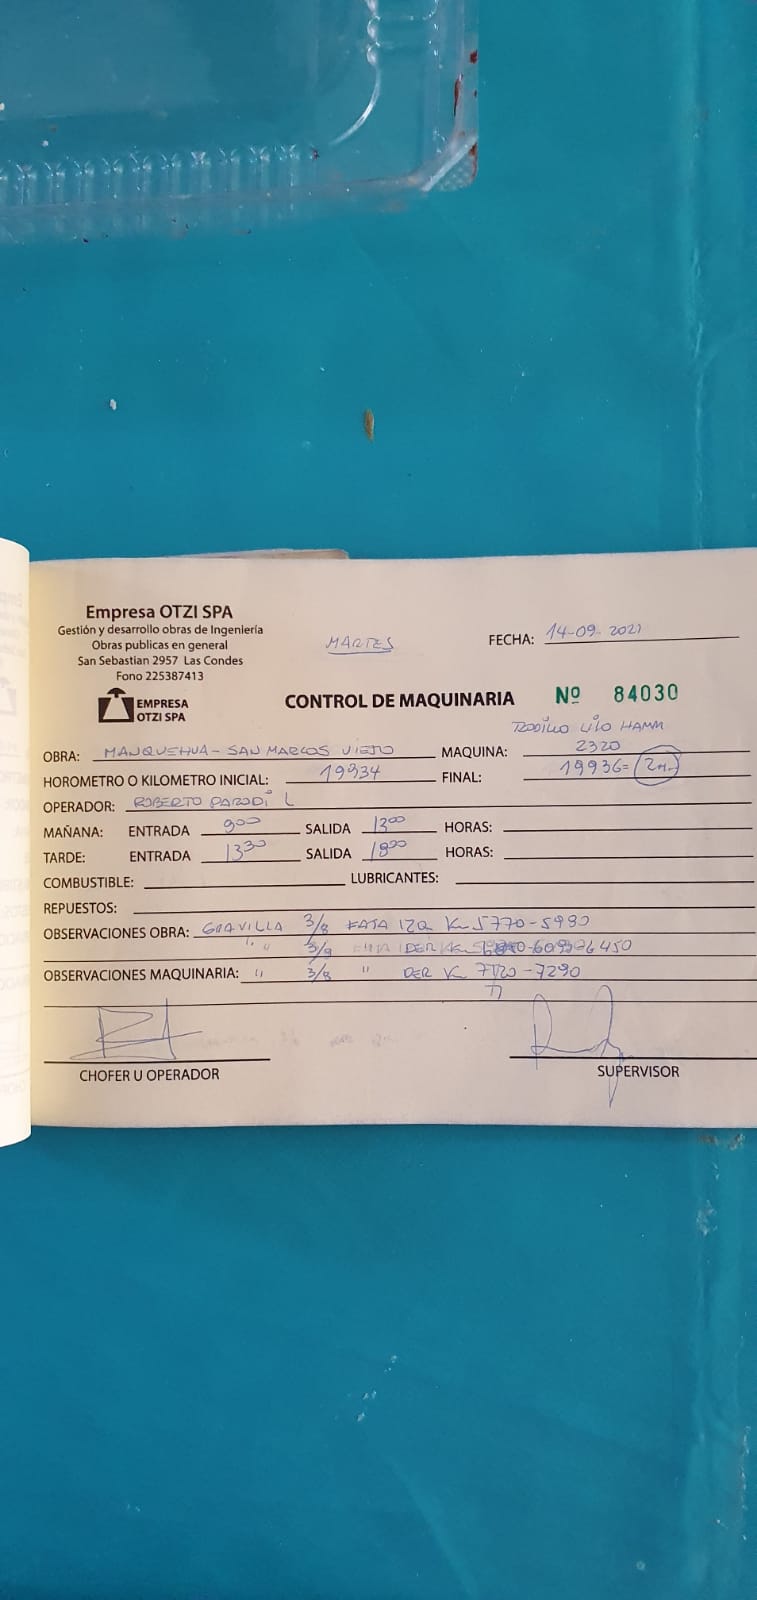 Empresa OTZI SPA
Gestión y desarrollo obras de Ingeniería
Obras publicas en general
San Sebastian 2957 Las Condes
Fono 225387413
EMPRESA
OTZI SPA
MARTES
FECHA: 14-09-2021
CONTROL DE MAQUINARIA Nº 84030
RODILLO LISO HAMM
OBRA: MANQUEHUA - SAN MARCOS VIEJO MAQUINA: 2320
HOROMETRO O KILOMETRO INICIAL: 19934 FINAL: 19936 = 2H.
OPERADOR: ROBERTO PARODI L
MAÑANA: ENTRADA 9:00 SALIDA 13:00 HORAS:
TARDE: ENTRADA 13:30 SALIDA 18:00 HORAS:
COMBUSTIBLE: LUBRICANTES:
REPUESTOS:
OBSERVACIONES OBRA: GRAVILLA 3/8 FAJA IZQ Km 5770-5990
" " 3/8 FAJA DER Km 6450
OBSERVACIONES MAQUINARIA: " 3/8 " DER Km 7120-7290
CHOFER U OPERADOR
SUPERVISOR